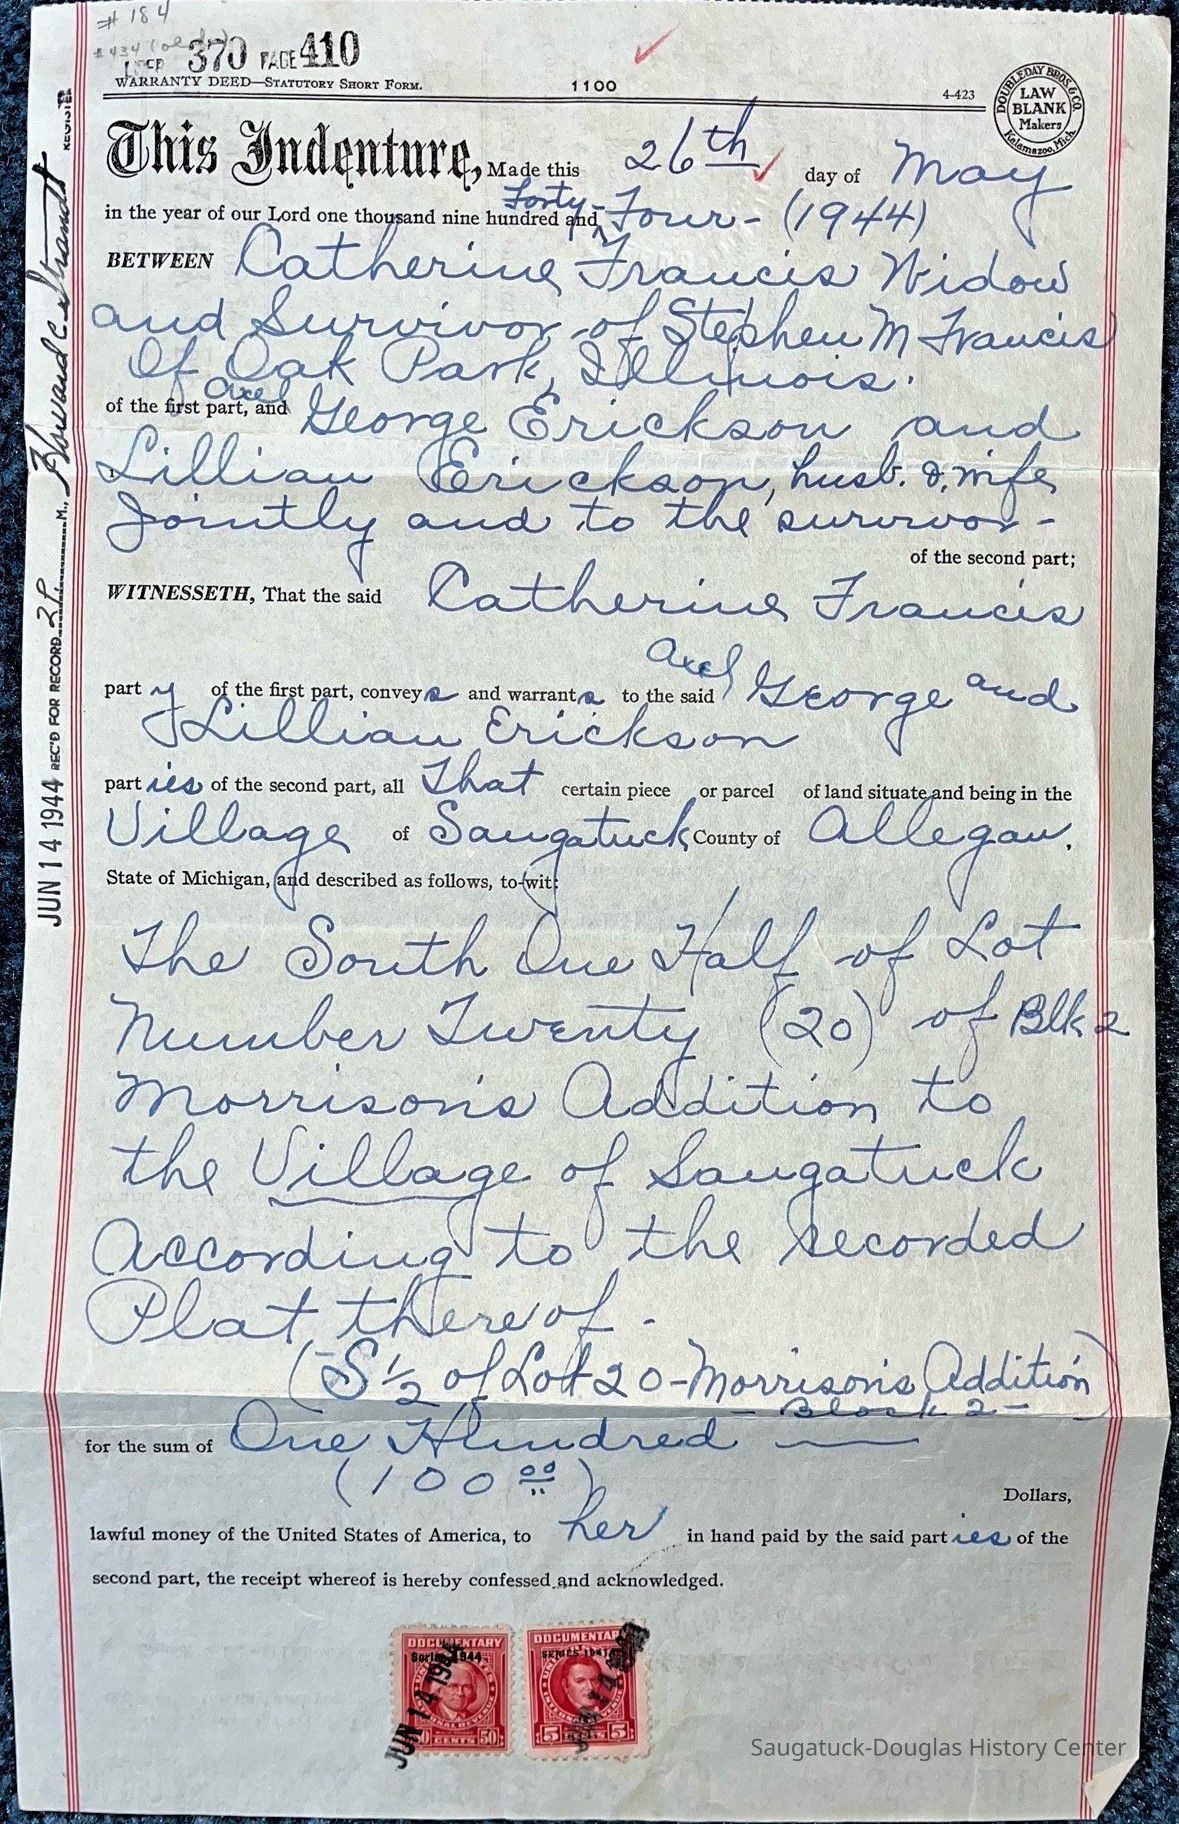 # 184
# 434
370 PAGE 410
WARRANTY DEED—STATUTORY SHORT FORM.
1100
4-423
DOUBLEDAY BROS. & CO.
LAW
BLANK
Makers
Kalamazoo, Mich.
This Indenture, Made this 26th day of May
Forty-
in the year of our Lord one thousand nine hundred and Four - (1944)
BETWEEN Catherine Francis Widow
and Survivor of Stephen M Francis
Of Oak Park, Illinois.
Axel
of the first part, and George Erickson and
Lillian Erickson, husb. & wife
Jointly and to the survivor -
of the second part;
WITNESSETH, That the said Catherine Francis
Axel
part y of the first part, conveys and warrants to the said George and
Lillian Erickson
parties of the second part, all That certain piece or parcel of land situate and being in the
Village of Saugatuck County of Allegan,
State of Michigan, and described as follows, to-wit:
The South One Half of Lot
Number Twenty (20) of Blk 2
Morrison's Addition to
the Village of Saugatuck
According to the recorded
Plat thereof -
(S 1/2 of Lot 20 - Morrison's Addition)
- Block 2 -
for the sum of One Hundred
(100 00)
Dollars,
lawful money of the United States of America, to her in hand paid by the said parties of the
second part, the receipt whereof is hereby confessed and acknowledged.
JUN 14 1944 REC'D FOR RECORD 2 P. M.,
REGISTER
DOCUMENTARY
Series 1944
50 CENTS 50
JUN 14 1944
DOCUMENTARY
SERIES 1941
5 5
Saugatuck-Douglas History Center